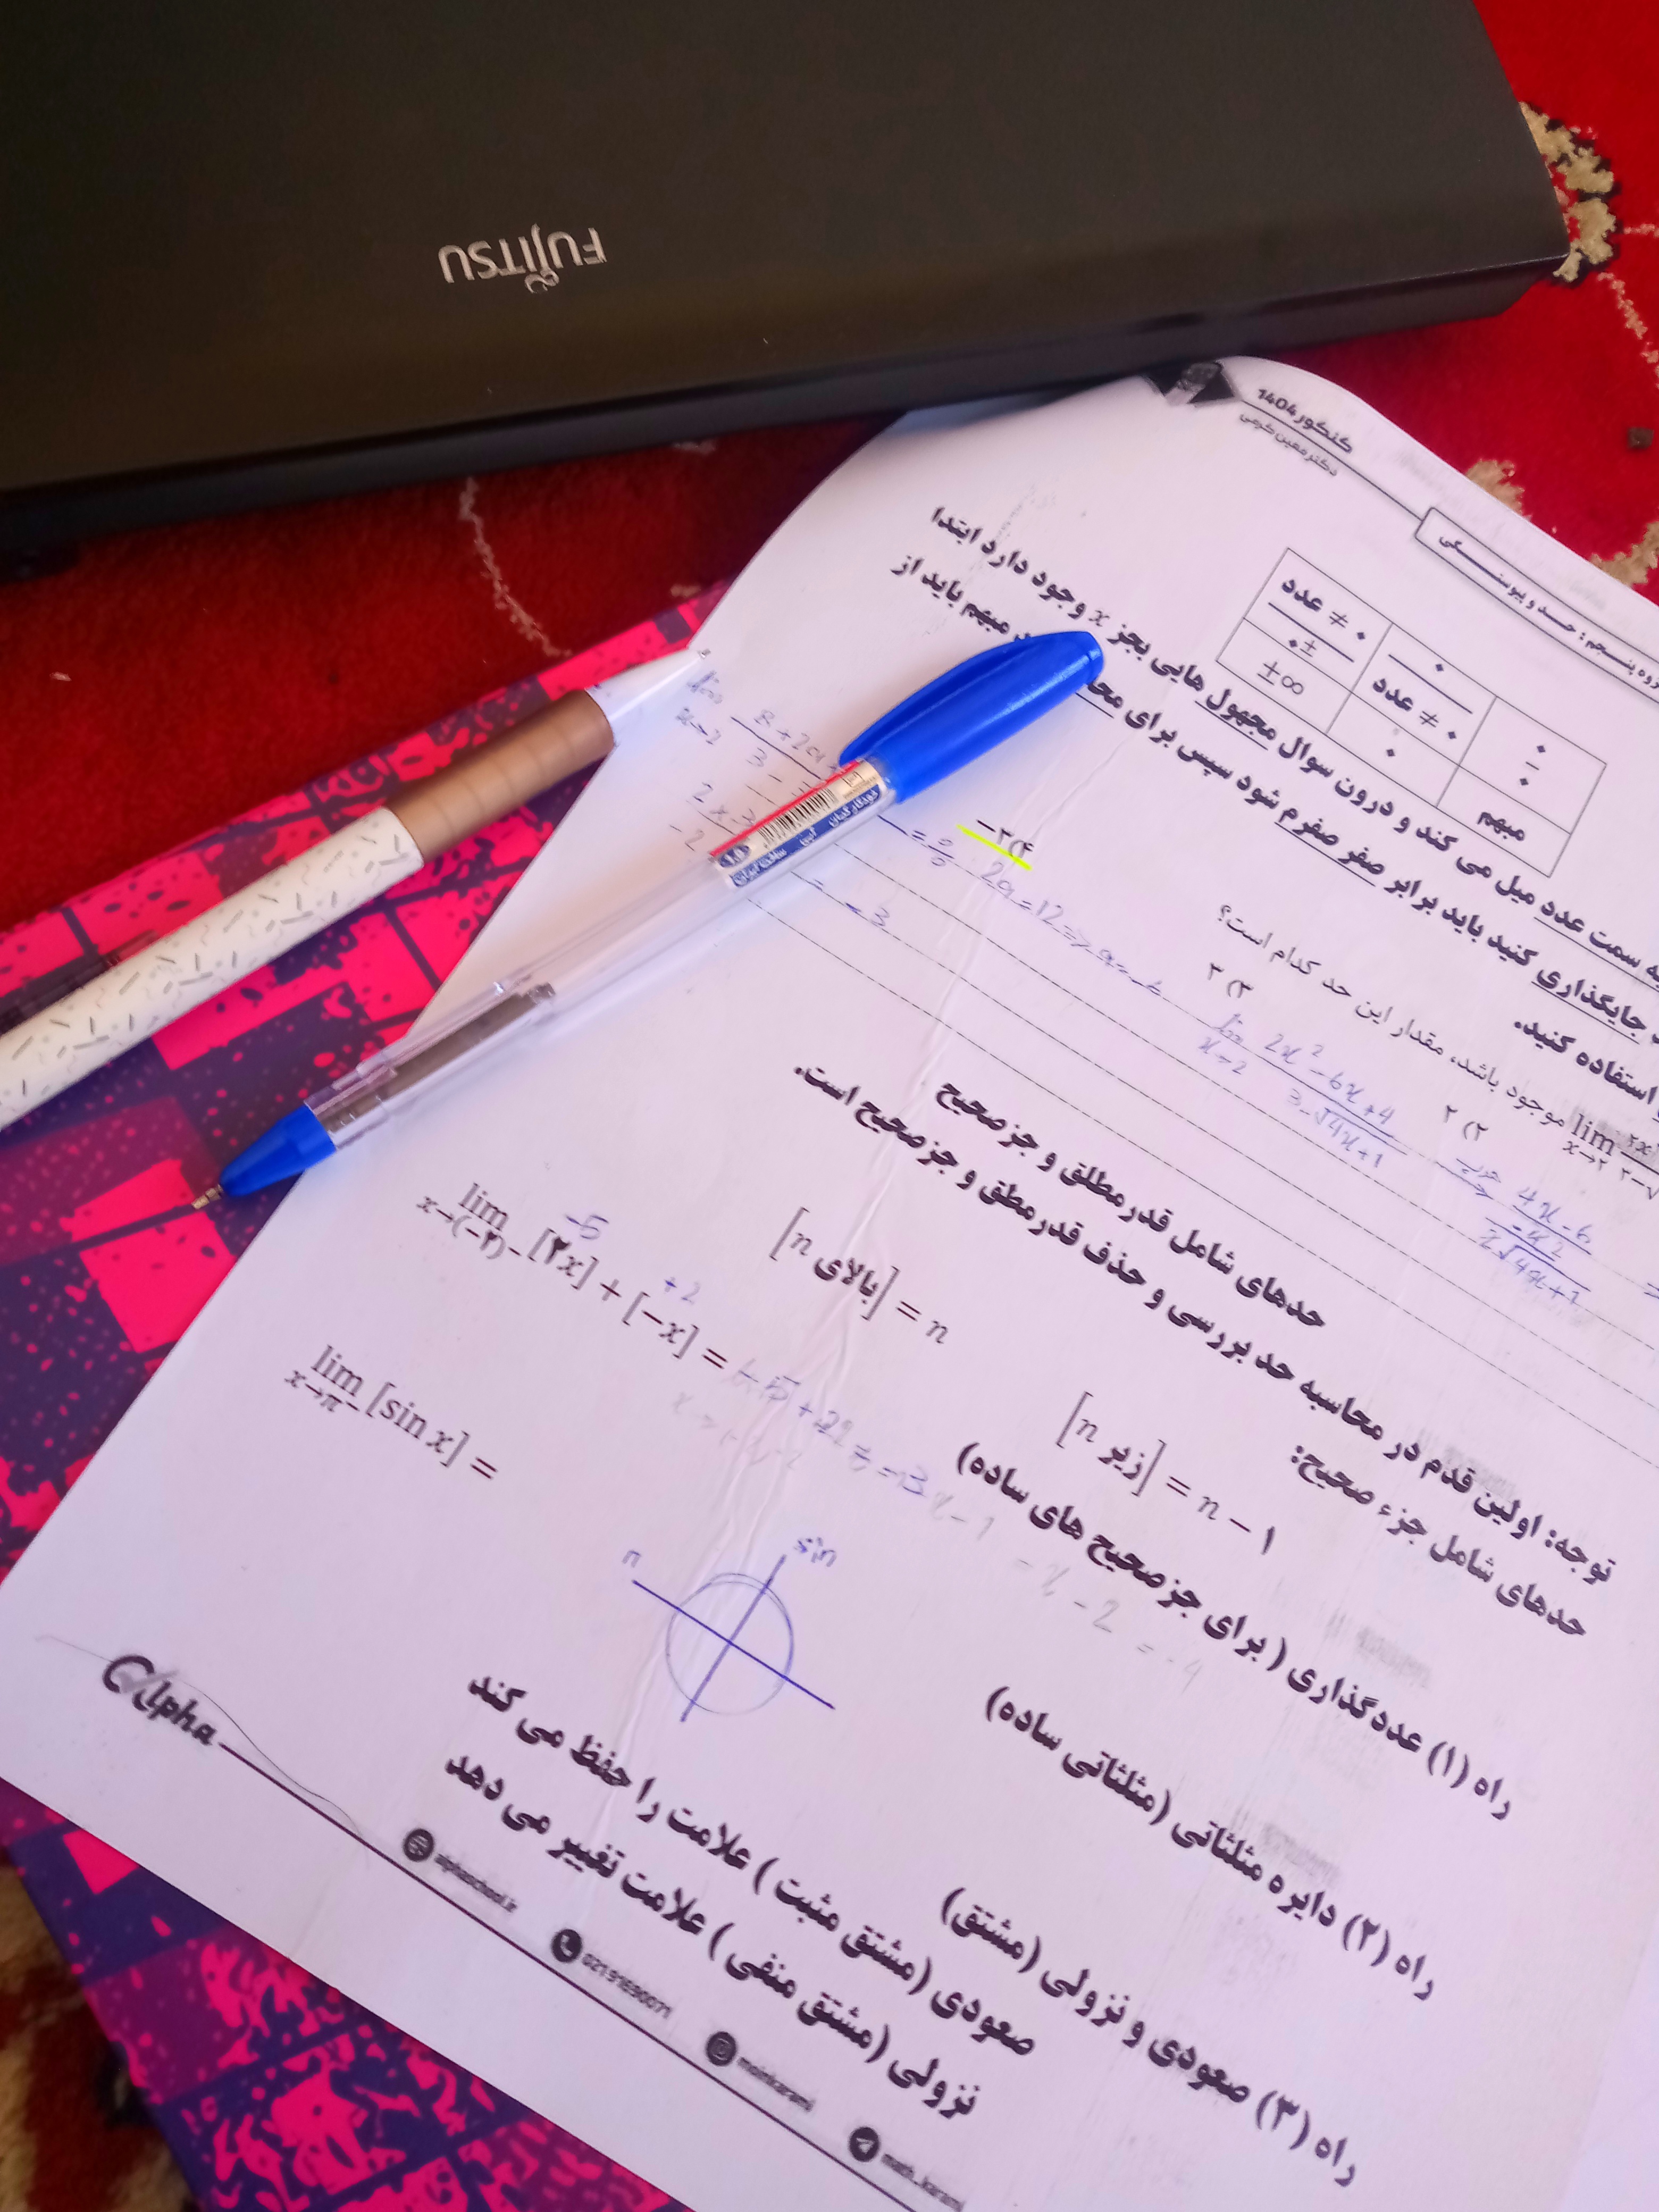 FUJITSU
کنکور 1404
دکتر معین کرمی
: حد و پیوستگی
عدد ≠ ۰
۰±
±∞
۰
عدد ≠ ۰
۰
۰
۰
مبهم
به سمت عدد میل می کند و درون سوال مجهول هایی بجز x وجود دارد ابتدا
جایگذاری کنید باید برابر صفر صفرم شود سپس برای مبهم باید از
استفاده کنید.
موجود باشد، مقدار این حد کدام است؟
lim x→۲
۲) ۲
۳) ۳
۴) ۳−
lim x→2
8+2a
= 0/0
2a=12 =>
-2
= -3
lim x→2 2x²-6x+4 / 3-√4x+1
4x-6
حدهای شامل قدرمطلق و جزصحیح
توجه: اولین قدم در محاسبه حد بررسی و حذف قدرمطق و جزصحیح است.
حدهای شامل جزء صحیح:
[زیر n] = n − ۱
[بالای n] = n
راه (۱) عددگذاری ( برای جزصحیح های ساده)
lim x→(−۲)− [۲x] + [−x] =
-5
+2
= -3
x-1
= x-2 = -4
راه (۲) دایره مثلثاتی (مثلثاتی ساده)
lim x→π− [sin x] =
π
sin
راه (۳) صعودی و نزولی (مشتق)
صعودی (مشتق مثبت ) علامت را حفظ می کند
نزولی (مشتق منفی ) علامت تغییر می دهد
Alpha
alphaschool.ir
021 91690071
moienkarami
math_karami